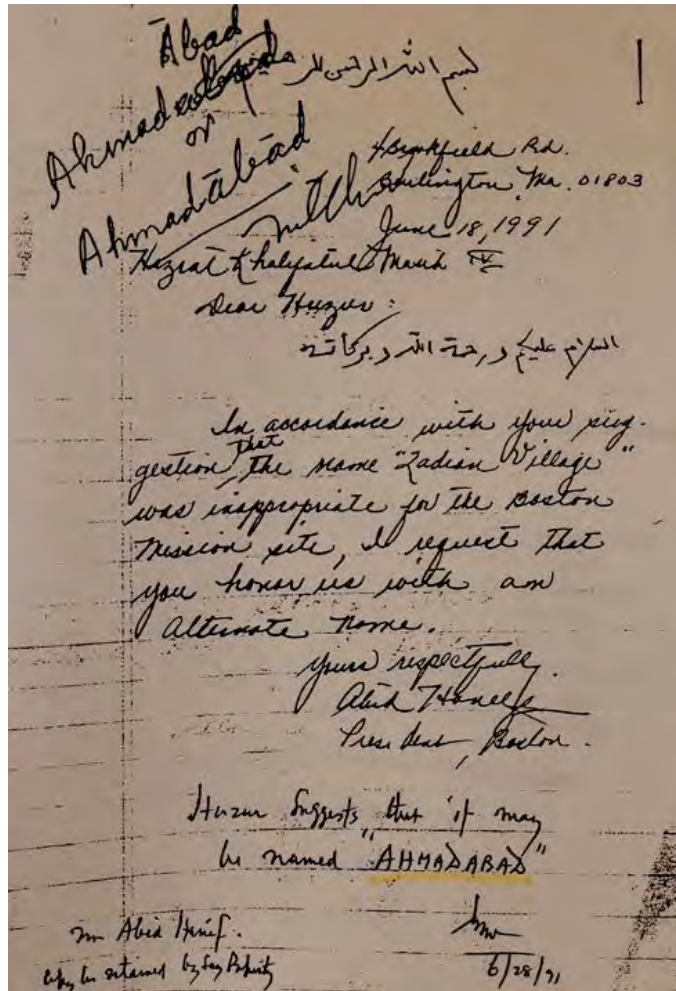 Abad
Ahmad
or
Ahmadābād
بسم اللہ الرحمن الرحیم
Brookfield Rd.
Burlington Ma. 01803
June 18, 1991
Hazrat Khalifatul Masih IV
Dear Huzur:
السلام علیکم و رحمۃ اللہ و برکاتہ
In accordance with your sug-
gestion that the name "Qadian Village"
was inappropriate for the Boston
Mission site, I request that
you honor us with an
alternate name.
Yours respectfully,
Abid Haneef
President, Boston.
Huzur suggests that it may
be named "AHMADABAD"
Abid Hanif.
6/28/91